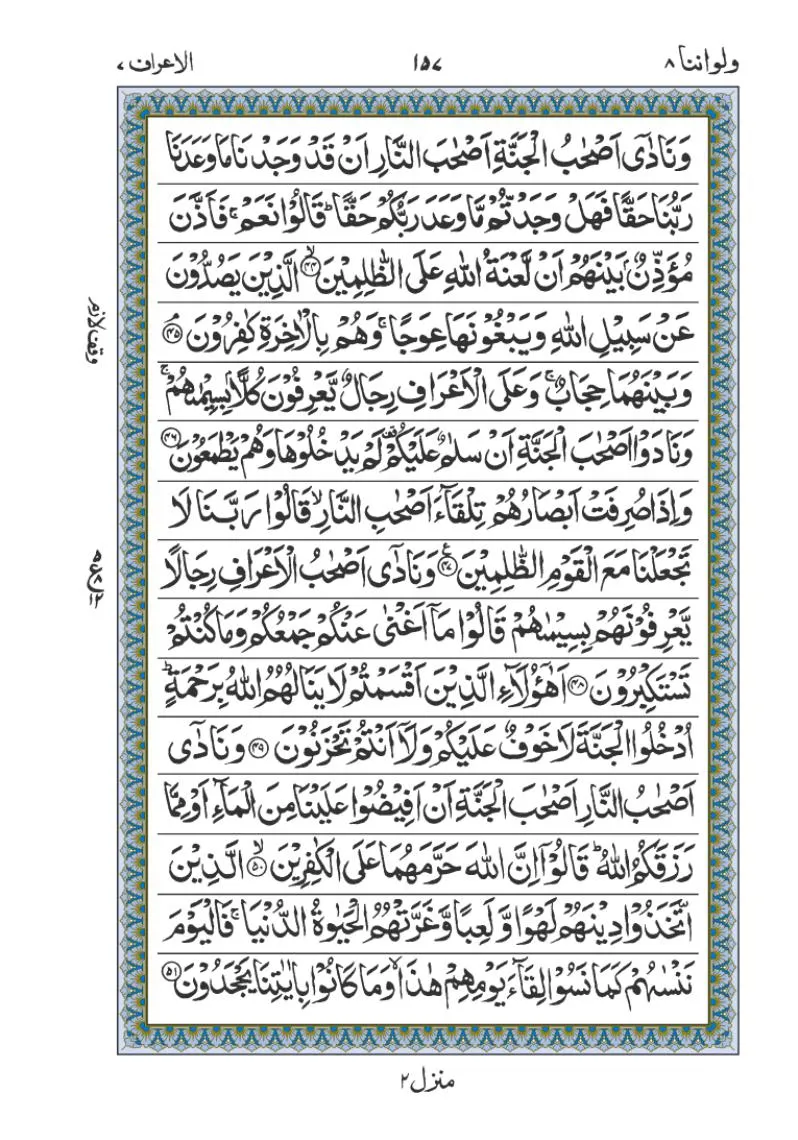 ولواننا ۸
۱۵۷
الاعراف ۷
وَنَادٰۤى اَصْحٰبُ الْجَنَّةِ اَصْحٰبَ النَّارِ اَنْ قَدْ وَجَدْنَا مَا وَعَدَنَا
رَبُّنَا حَقًّا فَهَلْ وَجَدْتُّمْ مَّا وَعَدَ رَبُّكُمْ حَقًّا ؕ قَالُوْا نَعَمْ ۚ فَاَذَّنَ
مُؤَذِّنٌۢ بَيْنَهُمْ اَنْ لَّعْنَةُ اللّٰهِ عَلَى الظّٰلِمِيْنَ ۙ﴿۴۴﴾ الَّذِيْنَ يَصُدُّوْنَ
عَنْ سَبِيْلِ اللّٰهِ وَيَبْغُوْنَهَا عِوَجًا ۚ وَهُمْ بِالْاٰخِرَةِ كٰفِرُوْنَ ۘ﴿۴۵﴾
وقف لازم
وَبَيْنَهُمَا حِجَابٌ ۚ وَعَلَى الْاَعْرَافِ رِجَالٌ يَّعْرِفُوْنَ كُلًّۢا بِسِيْمٰىهُمْ ۚ
وَنَادَوْا اَصْحٰبَ الْجَنَّةِ اَنْ سَلٰمٌ عَلَيْكُمْ ۟ لَمْ يَدْخُلُوْهَا وَهُمْ يَطْمَعُوْنَ ﴿۴۶﴾
وَاِذَا صُرِفَتْ اَبْصَارُهُمْ تِلْقَآءَ اَصْحٰبِ النَّارِ ۙ قَالُوْا رَبَّنَا لَا
تَجْعَلْنَا مَعَ الْقَوْمِ الظّٰلِمِيْنَ ﴿۴۷﴾ وَنَادٰۤى اَصْحٰبُ الْاَعْرَافِ رِجَالًا
يَّعْرِفُوْنَهُمْ بِسِيْمٰىهُمْ قَالُوْا مَاۤ اَغْنٰى عَنْكُمْ جَمْعُكُمْ وَمَا كُنْتُمْ
تَسْتَكْبِرُوْنَ ﴿۴۸﴾ اَهٰۤؤُلَآءِ الَّذِيْنَ اَقْسَمْتُمْ لَا يَنَالُهُمُ اللّٰهُ بِرَحْمَةٍ ؕ
اُدْخُلُوا الْجَنَّةَ لَا خَوْفٌ عَلَيْكُمْ وَلَاۤ اَنْتُمْ تَحْزَنُوْنَ ﴿۴۹﴾ وَنَادٰۤى
اَصْحٰبُ النَّارِ اَصْحٰبَ الْجَنَّةِ اَنْ اَفِيْضُوْا عَلَيْنَا مِنَ الْمَآءِ اَوْ مِمَّا
رَزَقَكُمُ اللّٰهُ ؕ قَالُوْۤا اِنَّ اللّٰهَ حَرَّمَهُمَا عَلَى الْكٰفِرِيْنَ ۙ﴿۵۰﴾ الَّذِيْنَ
اتَّخَذُوْا دِيْنَهُمْ لَهْوًا وَّلَعِبًا وَّغَرَّتْهُمُ الْحَيٰوةُ الدُّنْيَا ۚ فَالْيَوْمَ
نَنْسٰىهُمْ كَمَا نَسُوْا لِقَآءَ يَوْمِهِمْ هٰذَا ۙ وَمَا كَانُوْا بِاٰيٰتِنَا يَجْحَدُوْنَ ﴿۵۱﴾
منزل ۲